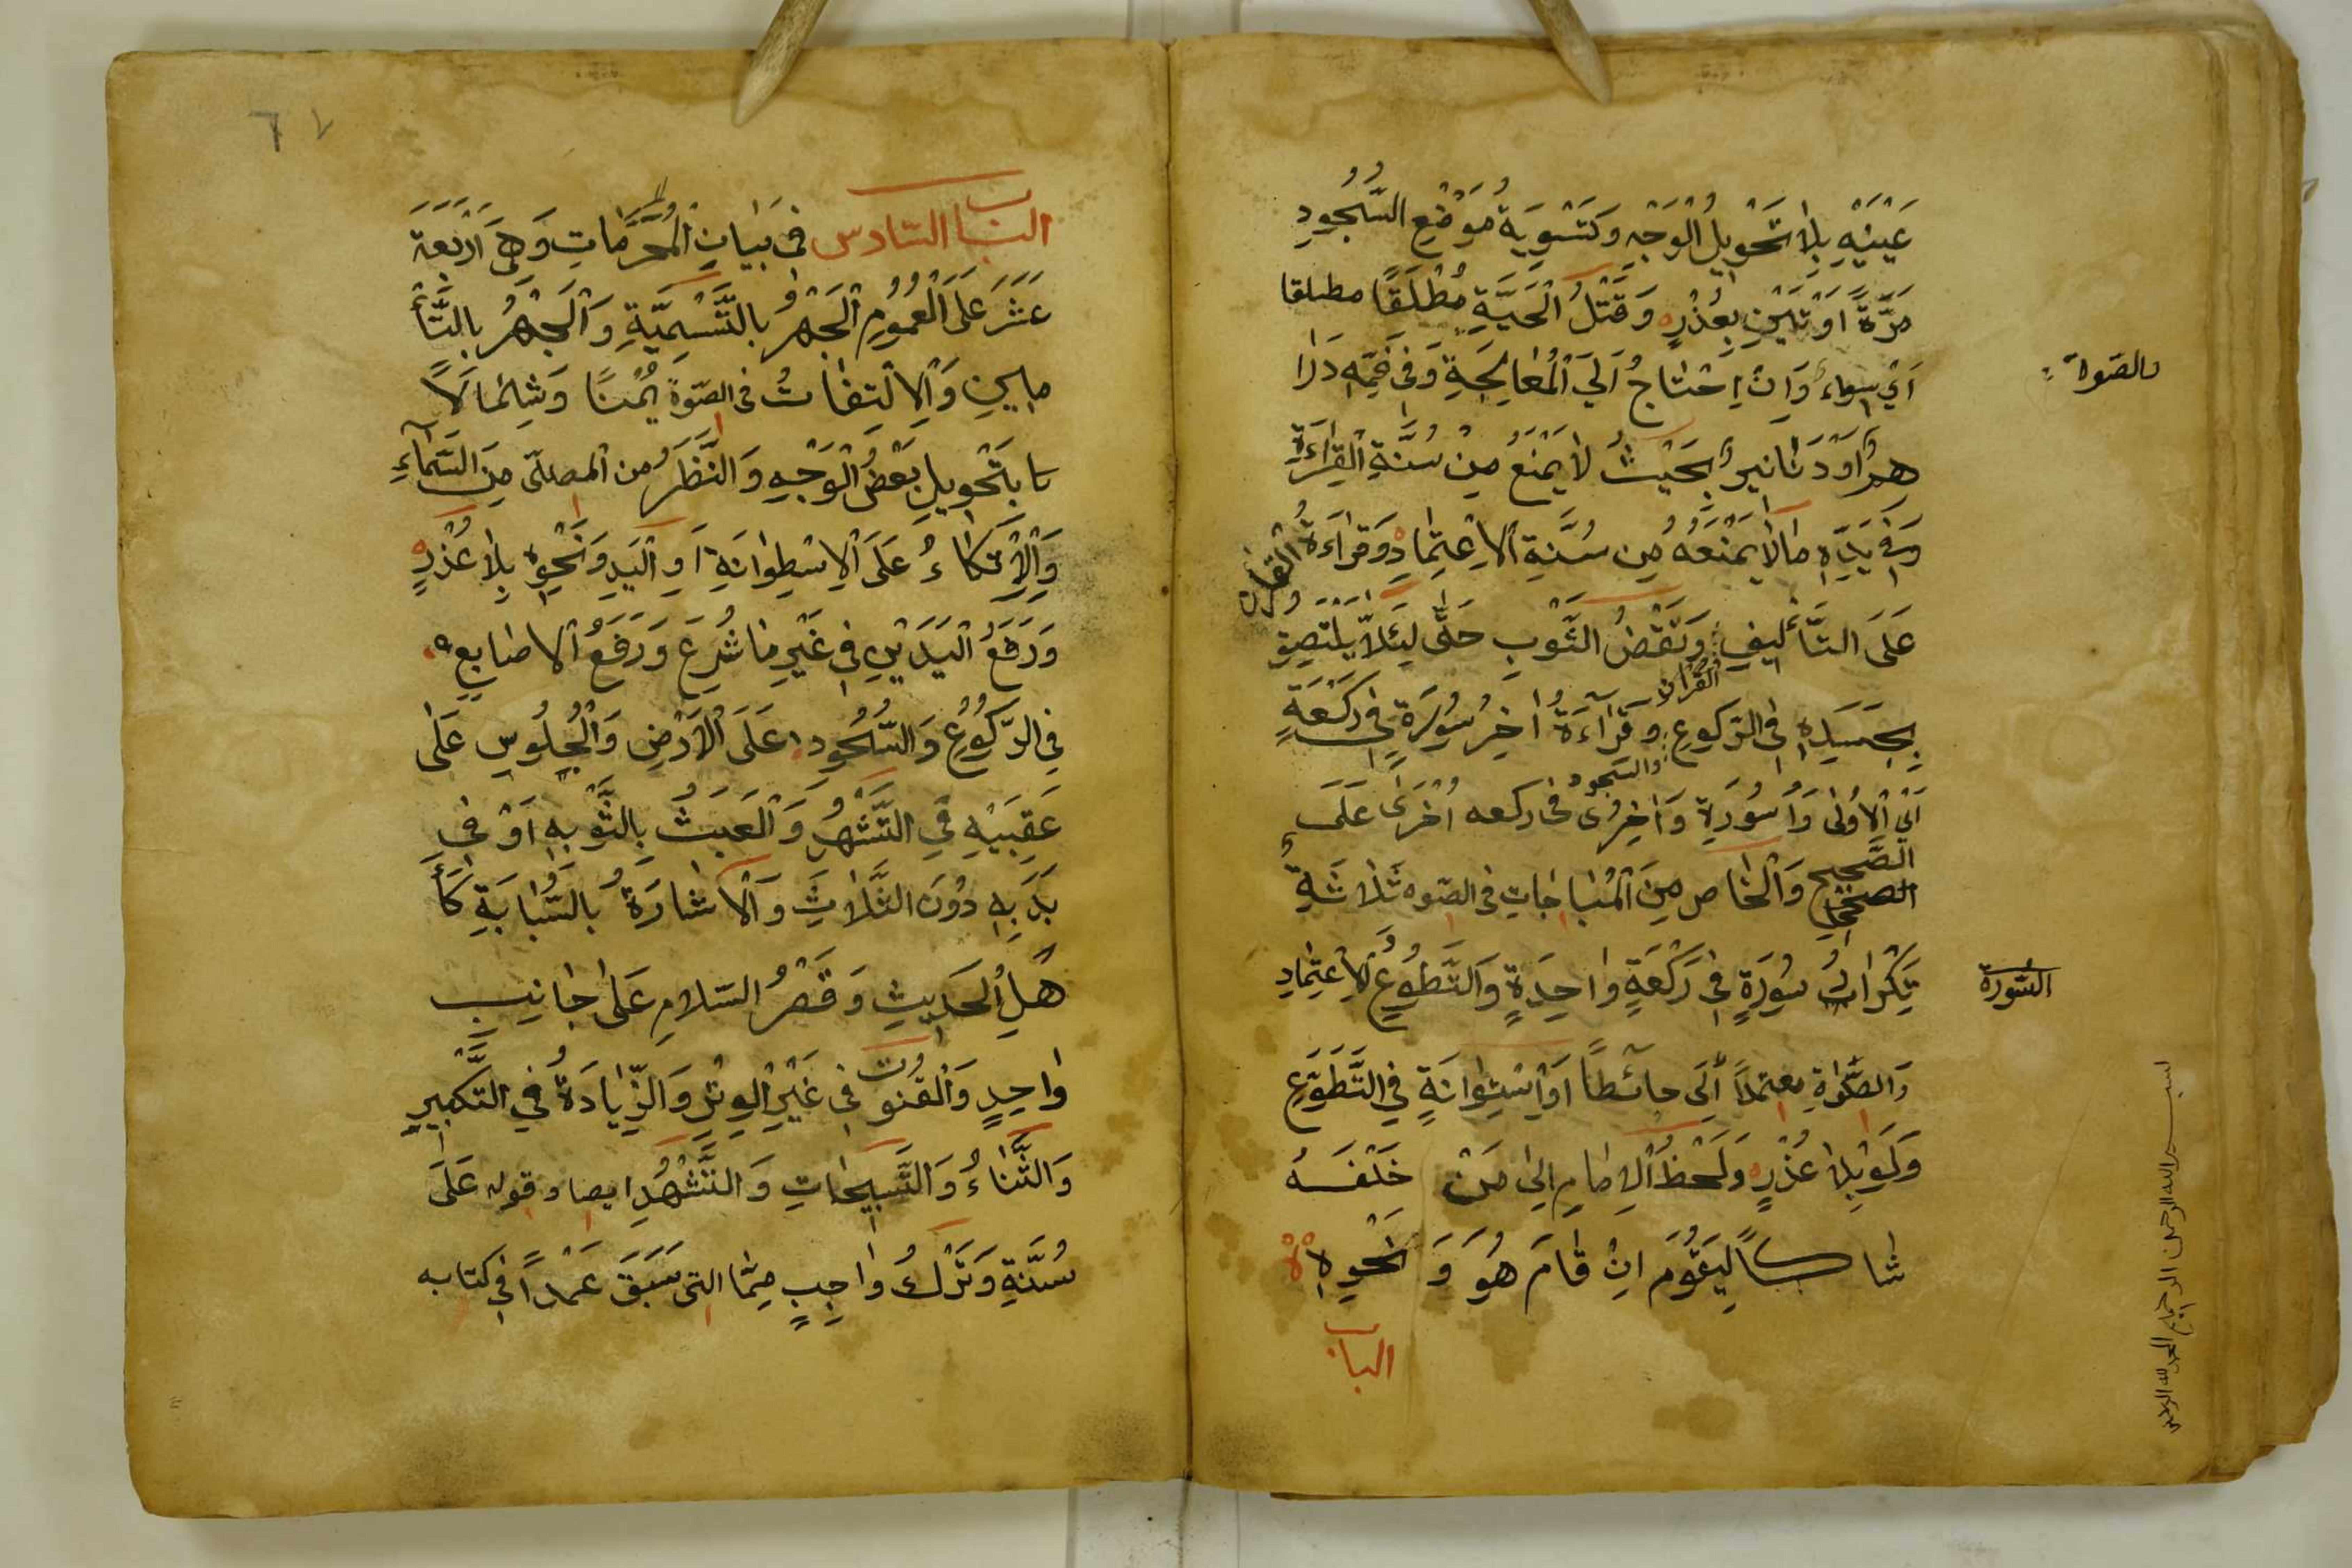 عَيْنَيْهِ بِلَا تَحْوِيلِ الْوَجْهِ وَتَسْوِيَةُ مَوْضِعِ السُّجُودِ
مَرَّةً اَوْ مَرَّتَيْنِ بِعُذْرٍ وَقَتْلُ الْحَيَّةِ مُطْلَقًا مطلقا
اَيْ سواء وَاِنْ اِحْتَاجُ اَلَي الْمُعَالَجَةِ وَفِي فَمِّهِ دَرَا
هِمُ اَوْ دَنَانِيرُ بِحَيْثُ لَا يَمْنَعُ مِنْ سُنَّةِ الْقِرَاءَةِ
وَفِي يَدِّهِ مَا لَا يَمْنَعُهُ مِنْ سُنَّةِ الْاِعْتِمَادِ وَقِرَاءَةُ القرآن
عَلَى التَّأْلِيفِ وَنَقْضُ الثَّوْبِ حَتَّى لِئَلَّا يَلْتَصِقَ
بِجَسَدِهِ فِي الرّكوعِ وَقِرَآءَةُ القرآن اٰخِرُ سُورَةٍ فِي رَكْعَةٍ
والسجود
اَيْ الْاُولٰى وَاُ سُورَةٍ وَاٰخِرُ فى ركعه اُخْرَى عَلَى
الصَّحِيحِ
الصحيح وَالْخَاص مِنَ الْمُبَاحَاتِ فى الصّوه ثَلَاثَةٌ
تِكْرَارُ سُورَةٍ فِي رَكْعَةٍ وَاحِدَةٍ وَالتَّطَوُّعِ الْاِعْتِمَادِ
وَالصَّلٰوةِ معتمدًا اِلَى حائطًا اَوْ اِسْتِوَانَةٍ فِي التَّطَوُّعِ
وَلَوْ بِلَا عُذْرٍ وَلَحْظُ الْاِمَامِ اِلَى مَنْ خَلْفَهُ
شاكًا لِيَقُومَ اِنْ قَامَ هُوَ وَ نَحْوِهِ
الباب
بالصّوة
السّورة
بسم الله الرحمن الرحيم الحمد لله
٦٧
الباب السّادس فِي بَيَانِ الْمُحَرَّمَاتِ وَهِيَ اَرْبَعَةَ
عَشَرَ عَلَى الْعُمُومِ الْجَهْرُ بِالتَّسْمِيَّةِ وَالْجَهْرُ بِالتَّأْ
مِينِ وَالْاِلْتِفَاتُ فى الصّوة يُمْنًا وَشِمَالًا
بِتَحْوِيلِ بَعْضُ الْوَجْهِ وَالنَّظَرُ من المصلّى مِنَ السَّمَآءِ
وَالْاِتِّكَاءُ عَلَى الْاِسْطِوَانَةِ اَوِ الْيَدِ وَنَحْوِهِ بِلَا عُذْرٍ
وَرَفْعُ الْيَدَيْنِ فِي غَيْرِ مَا شُرِعَ وَرَفْعُ الْاَصَابِعِ
فِي الرُّكُوعِ وَالسُّجُودِ عَلَى الْاَرْضِ وَالْجُلُوسِ عَلَى
عَقِبَيْهِ فِي التَّشَهُّدِ وَالْعَبَثُ بِالثَّوْبِهِ اَوْ فِي
بَدَنِهِ دُوْنَ الثَّلَاثَ وَالْاِشَارَةُ بِالسَّبَّابَةِ كَأَ
هْلِ الْحَدِيثِ وَقَصْرُ السّلامِ عَلَى جَانِبٍ
وَاحِدٍ وَالْقُنُوتِ فِي غَيْرِ الْوِتْرِ وَالزِّيَادَةُ فِي التَّكْبِيرِ
وَالثَّنَاءُ وَالتَّسْبِيحَاتِ وَالتَّشَهُّدِ ايضا وقوله عَلَى
سُنَّةٍ وَتَرْكُ وَاجِبٍ مِمَّا التى سَبَقَ عَمْدًا فِي كتابه